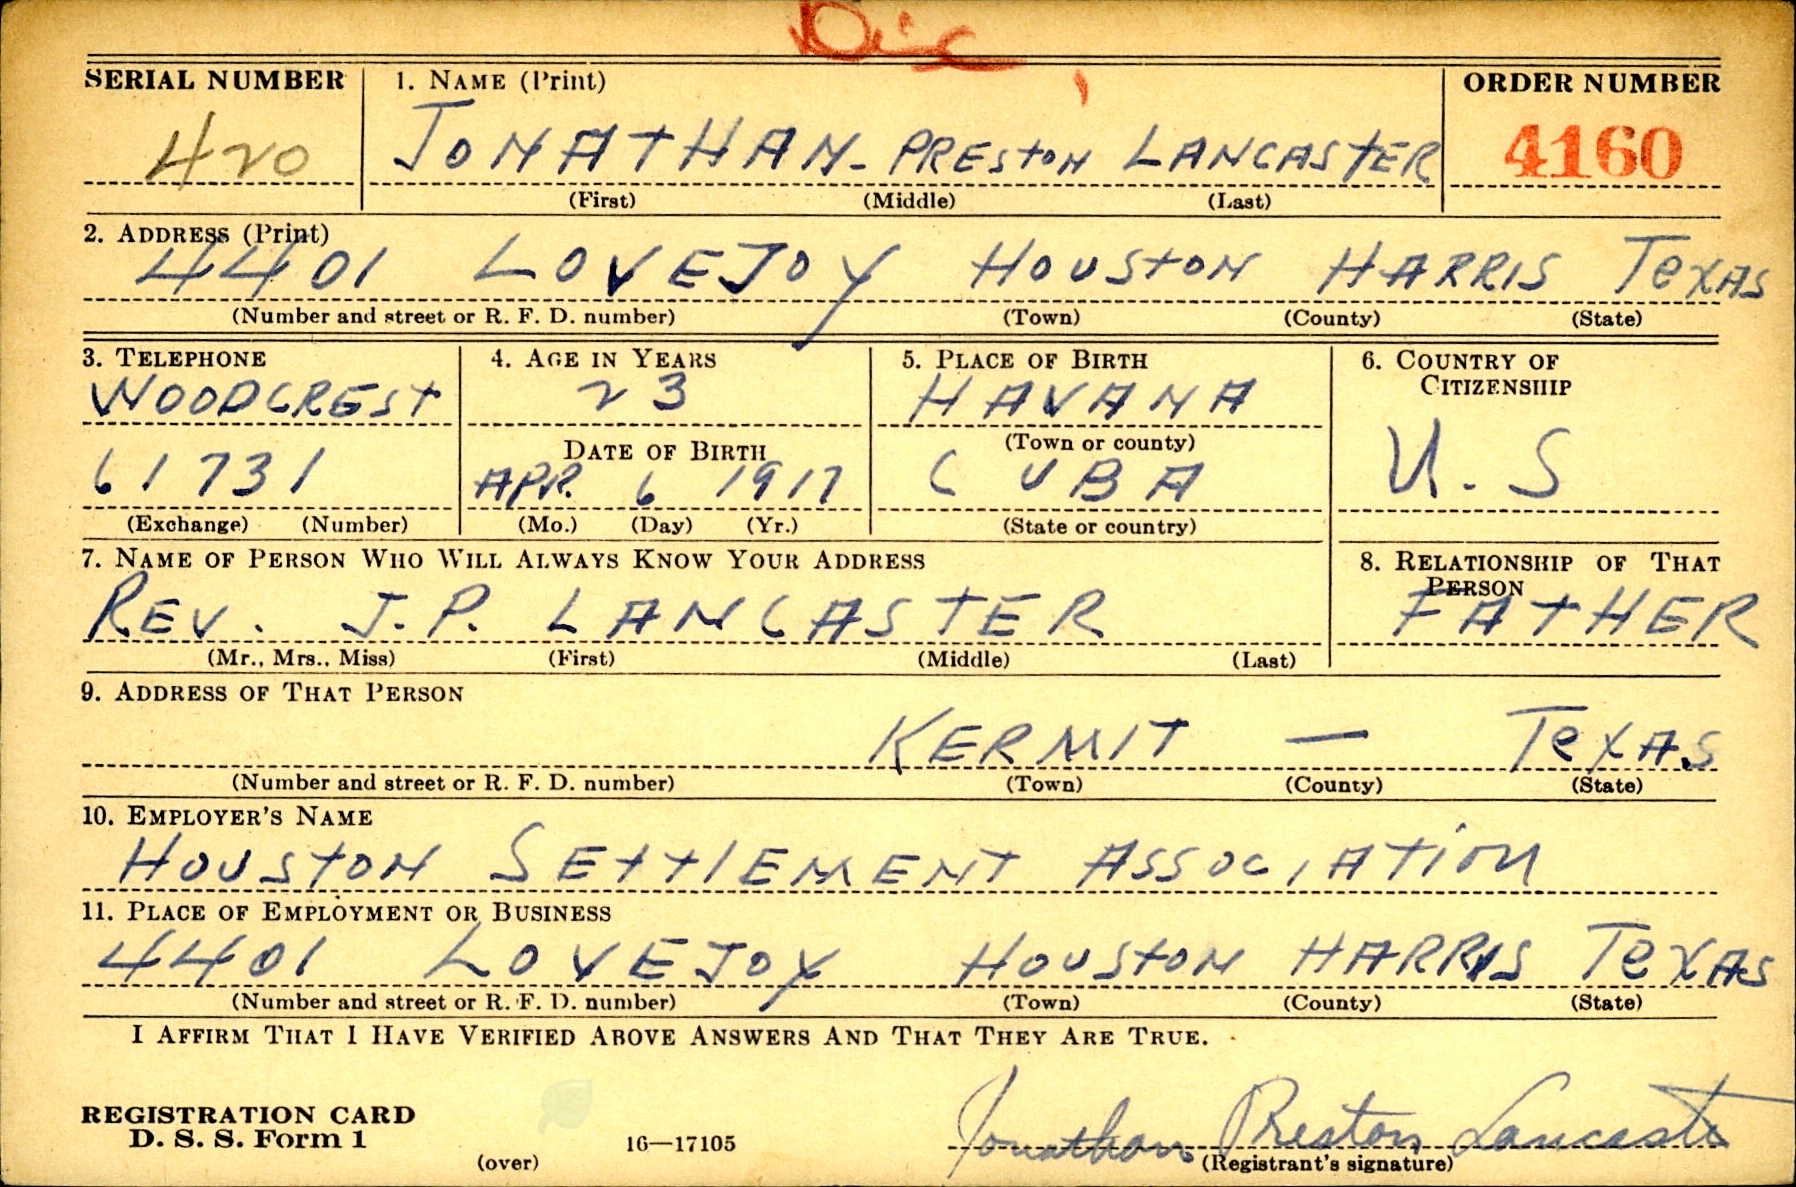 Dis
SERIAL NUMBER 1. NAME (Print) ORDER NUMBER
420 JONATHAN - PRESTON LANCASTER 4160
(First) (Middle) (Last)
2. ADDRESS (Print)
4401 LOVEJOY HOUSTON HARRIS TEXAS
(Number and street or R. F. D. number) (Town) (County) (State)
3. TELEPHONE 4. AGE IN YEARS 5. PLACE OF BIRTH 6. COUNTRY OF
CITIZENSHIP
WOODCREST 23 HAVANA
DATE OF BIRTH (Town or county)
61731 APR. 6 1917 CUBA U.S
(Exchange) (Number) (Mo.) (Day) (Yr.) (State or country)
7. NAME OF PERSON WHO WILL ALWAYS KNOW YOUR ADDRESS 8. RELATIONSHIP OF THAT
PERSON
REV. J.P. LANCASTER FATHER
(Mr., Mrs., Miss) (First) (Middle) (Last)
9. ADDRESS OF THAT PERSON
KERMIT — TEXAS
(Number and street or R. F. D. number) (Town) (County) (State)
10. EMPLOYER'S NAME
HOUSTON SETTlEMENT ASSOCIATION
11. PLACE OF EMPLOYMENT OR BUSINESS
4401 LOVEJOY HOUSTON HARRIS TEXAS
(Number and street or R. F. D. number) (Town) (County) (State)
I AFFIRM THAT I HAVE VERIFIED ABOVE ANSWERS AND THAT THEY ARE TRUE.
REGISTRATION CARD
D. S. S. Form 1 16—17105 Jonathan Preston Lancaster
(over) (Registrant's signature)